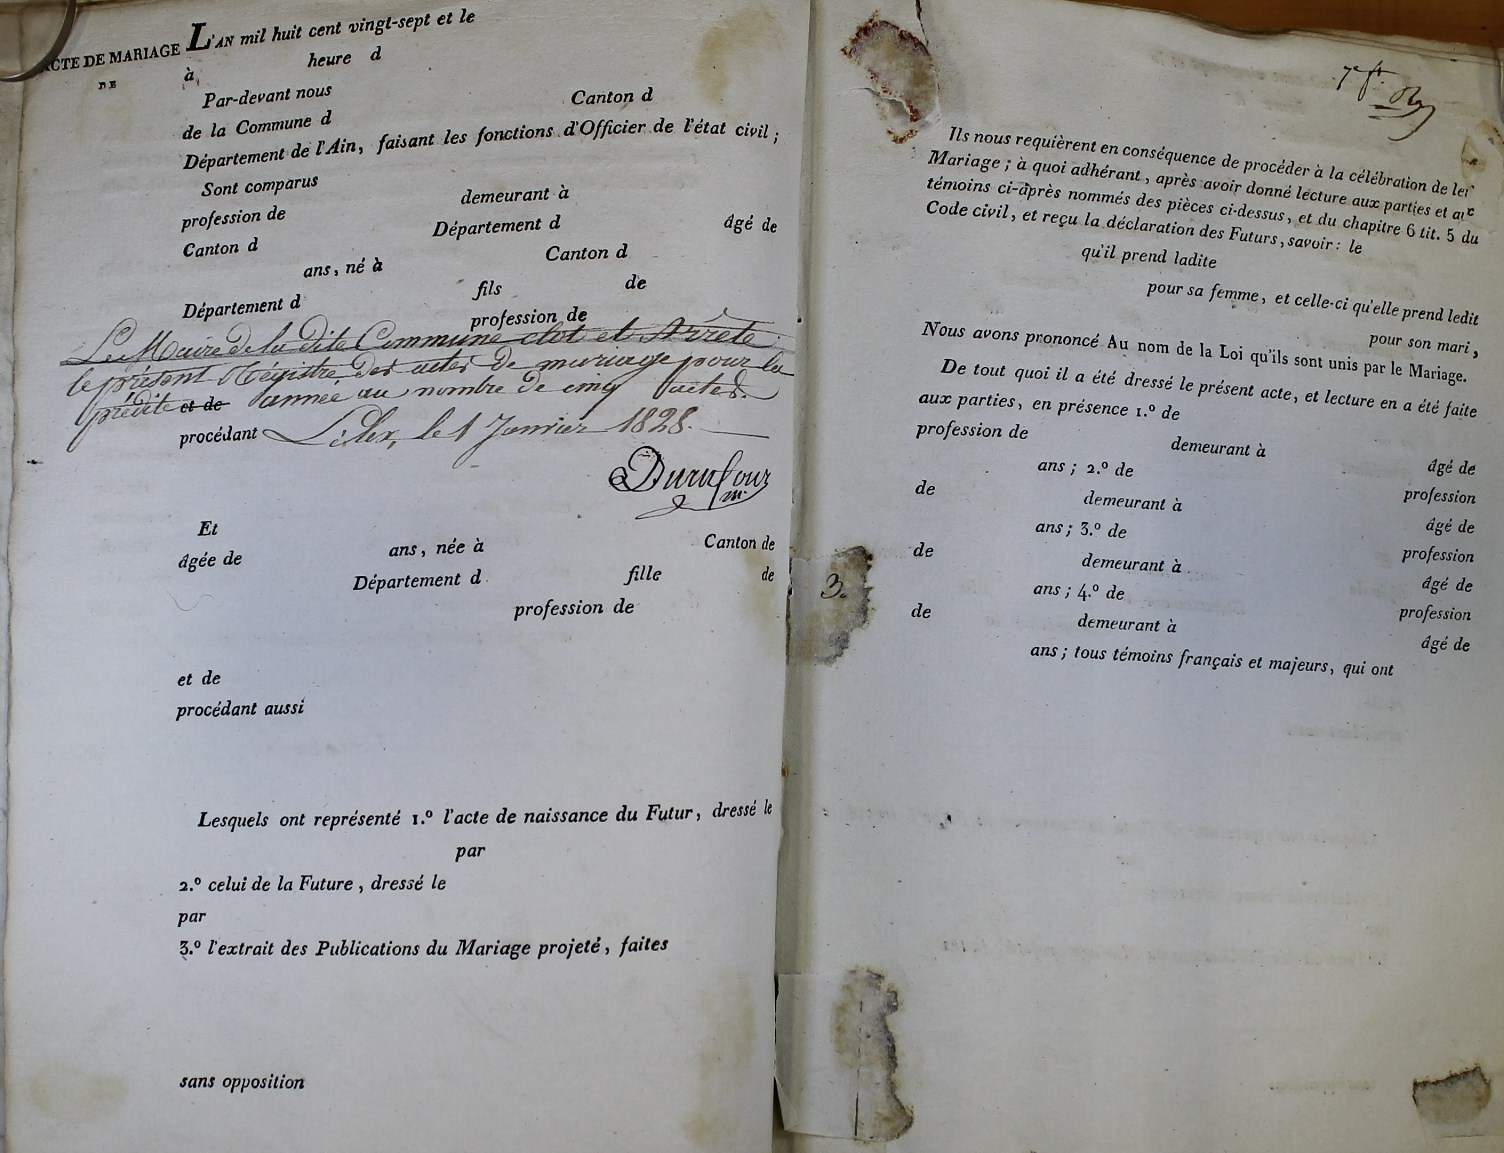 ACTE DE MARIAGE
DE
L'AN mil huit cent vingt-sept et le
à heure d
Par-devant nous
de la Commune d Canton d
Département de l'Ain, faisant les fonctions d'Officier de l'état civil;
Sont comparus
profession de demeurant à
Canton d Département d âgé de
ans, né à Canton d
Département d fils de
profession de
Le Maire de la dite Commune clot et Arrete
le présent Régistre des actes de mariage pour la
prédite et de année au nombre de cinq actes.
procédant Lélex, le 1 Janvier 1828.
Duruffour
m.
Et
âgée de ans, née à Canton de
Département d fille de
profession de
et de
procédant aussi
Lesquels ont représenté 1.º l'acte de naissance du Futur, dressé le
par
2.º celui de la Future, dressé le
par
3.º l'extrait des Publications du Mariage projeté, faites
sans opposition
3.
7e ft.
Ils nous requièrent en conséquence de procéder à la célébration de leur
Mariage; à quoi adhérant, après avoir donné lecture aux parties et aux
témoins ci-après nommés des pièces ci-dessus, et du chapitre 6 tit. 5 du
Code civil, et reçu la déclaration des Futurs, savoir: le
qu'il prend ladite
pour sa femme, et celle-ci qu'elle prend ledit
pour son mari,
Nous avons prononcé Au nom de la Loi qu'ils sont unis par le Mariage.
De tout quoi il a été dressé le présent acte, et lecture en a été faite
aux parties, en présence 1.º de
profession de demeurant à âgé de
ans; 2.º de profession
de demeurant à âgé de
ans; 3.º de profession
de demeurant à âgé de
ans; 4.º de profession
de demeurant à âgé de
ans; tous témoins français et majeurs, qui ont